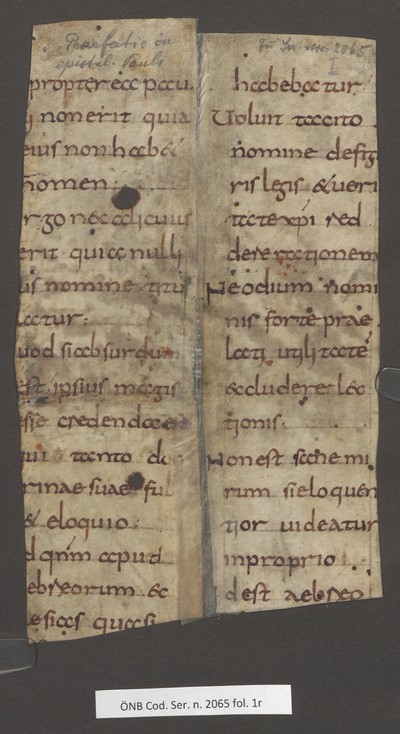 Praefatio in
epistol. Pauli
propterea pecu
non erit quia
eius non habe&
nomen
rgo nec alicuius
erit quia nulli
us nomine titu
latur:
uod si absurdum
est. ipsius magis
esse credenda est
qui tanto doc
rinae suae ful
& eloquio:
d qnm apud
ebreorum ec
esias quasi
Ser. n. 2065
I
habebatur
Uoluit tacito
nomine defigu
ris legis & ueri
tate xpi sed
desertationem
Ne odium nomi
nis forte prae
lati utilitatē
excluderet lec
tionis.
Non est sane mi
rum si eloquen
tior uideatur
in proprio
Idest aebreo
ÖNB Cod. Ser. n. 2065 fol. 1r